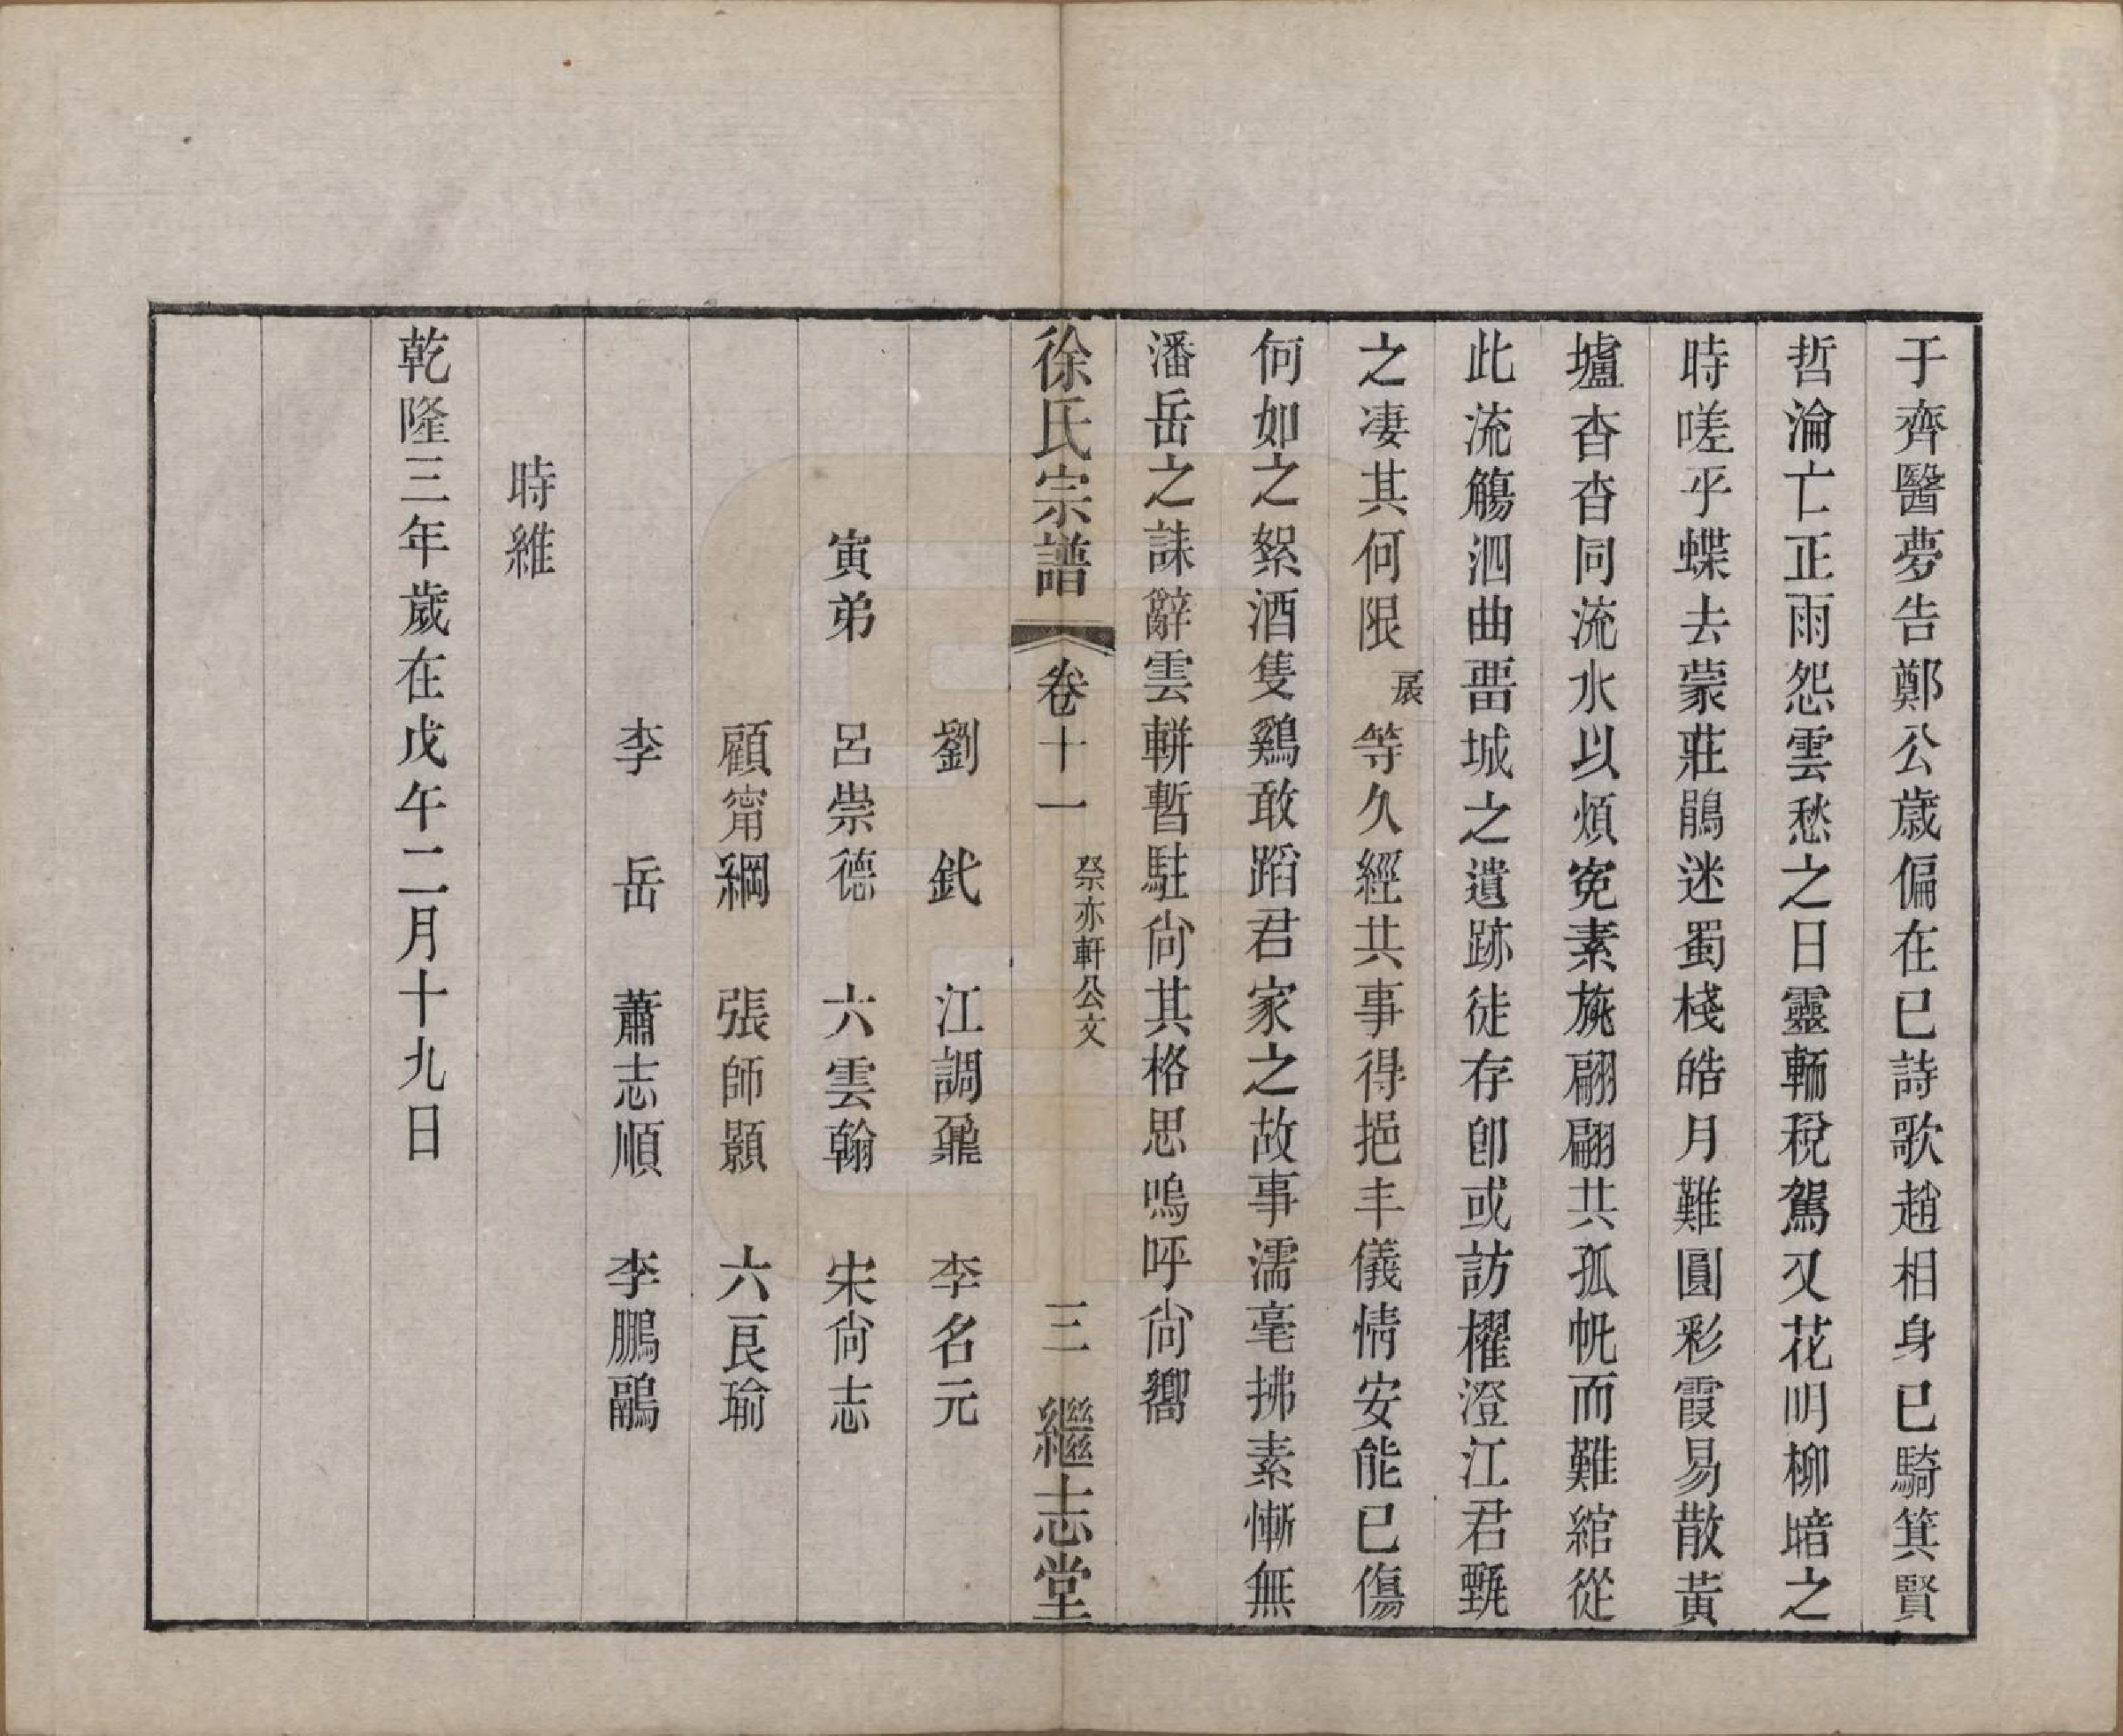 于齊醫夢告鄭公歲偏在巳詩歌趙相身已騎箕賢
哲淪亡正雨怨雲愁之日靈輀稅駕又花明柳暗之
時嗟乎蝶去蒙莊鵑迷蜀棧皓月難圓彩霞易散黃
壚杳杳同流水以煩寃素旐翩翩共孤帆而難綰從
此流觴泗曲畱城之遺跡徒存卽或訪櫂澄江君甎
之凄其何限展等久經共事得挹丰儀情安能已傷
何如之絮酒隻鷄敢蹈君家之故事濡毫拂素慚無
潘岳之誄辭雲輧暫駐尙其格思嗚呼尙嚮
徐氏宗譜 卷十一 祭亦軒公文 三 繼志堂
劉 釴 江調鼐 李名元
寅弟 呂崇德 六雲翰 宋尙志
顧甯綱 張師顥 六良瑜
李 岳 蕭志順 李鵬鷊
時維
乾隆三年歲在戊午二月十九日